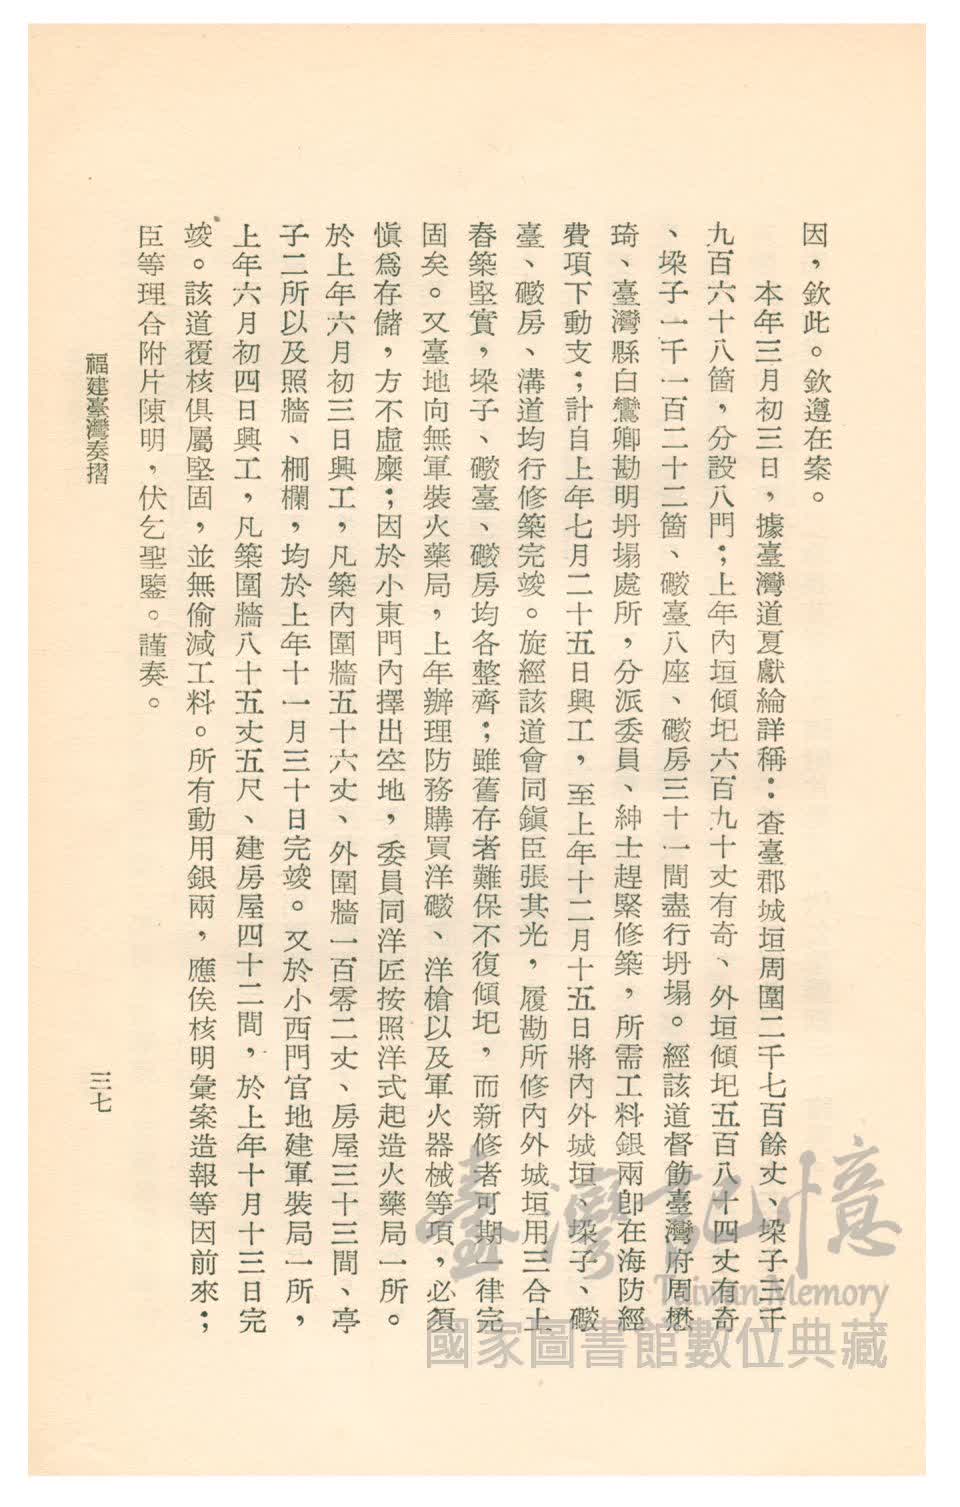 因，欽此。欽遵在案。
本年三月初三日，據臺灣道夏獻綸詳稱：查臺郡城垣周圍二千七百餘丈、垛子三千
九百六十八箇，分設八門；上年內垣傾圯六百九十丈有奇、外垣傾圯五百八十四丈有奇
、垛子一千一百二十二箇、礮臺八座、礮房三十一間盡行坍塌。經該道督飭臺灣府周懋
琦、臺灣縣白鸞卿勘明坍塌處所，分派委員、紳士趕緊修築，所需工料銀兩卽在海防經
費項下動支；計自上年七月二十五日興工，至上年十二月十五日將內外城垣、垛子、礮
臺、礮房、溝道均行修築完竣。旋經該道會同鎭臣張其光，履勘所修內外城垣用三合土
舂築堅實，垛子、礮臺、礮房均各整齊；雖舊存者難保不復傾圯，而新修者可期一律完
固矣。又臺地向無軍裝火藥局，上年辦理防務購買洋礮、洋槍以及軍火器械等項，必須
愼爲存儲，方不虛糜；因於小東門內擇出空地，委員同洋匠按照洋式起造火藥局一所。
於上年六月初三日興工，凡築內圍牆五十六丈、外圍牆一百零二丈、房屋三十三間、亭
子二所以及照牆、柵欄，均於上年十一月三十日完竣。又於小西門官地建軍裝局一所，
上年六月初四日興工，凡築圍牆八十五丈五尺、建房屋四十二間，於上年十月十三日完
竣。該道覆核俱屬堅固，並無偷減工料。所有動用銀兩，應俟核明彙案造報等因前來；
臣等理合附片陳明，伏乞聖鑒。謹奏。
福建臺灣奏摺
三七
臺灣記憶
Taiwan Memory
國家圖書館數位典藏